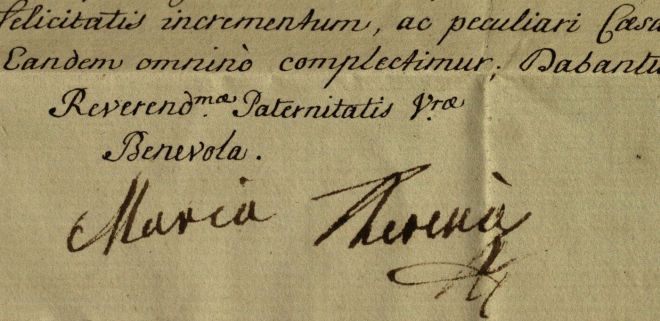 felicitatis incrementum, ac peculiari Cæsa
Eandem omninò complectimur; Dabantu
Reverendmæ Paternitatis Vræ
Benevola.
Maria Theresia